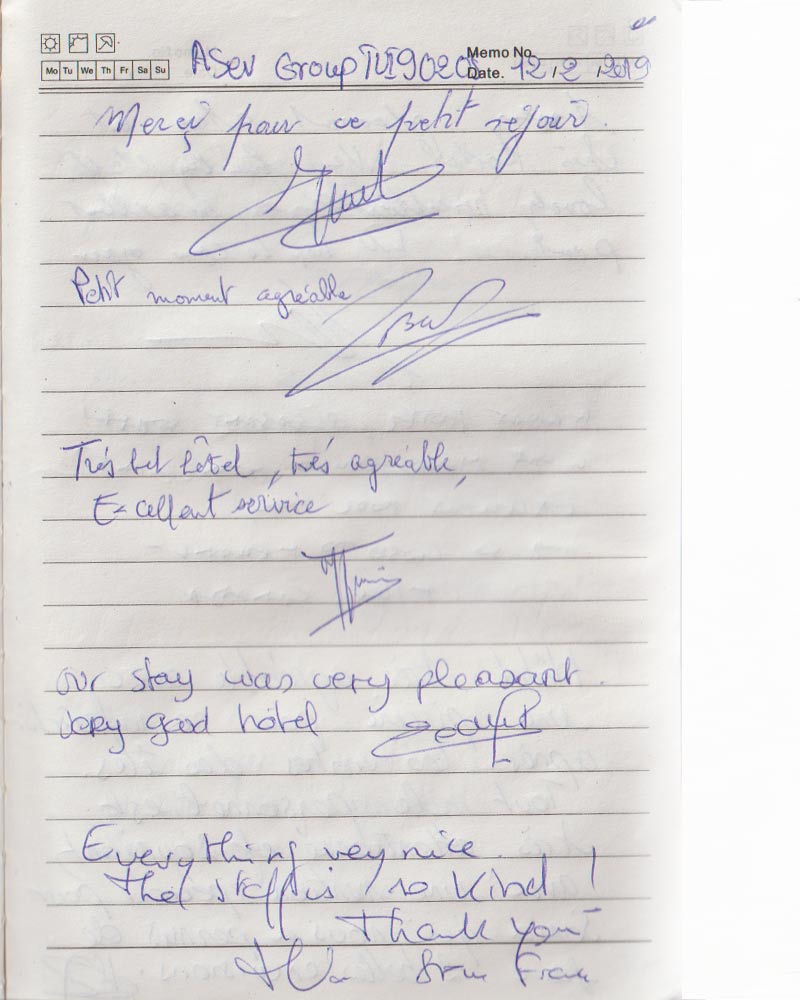 Memo No.
Mo Tu We Th Fr Sa Su
Asev Group TUI9020
Date. 12/2/2019
Merçi pour ce petit séjour.
Petit moment agréable
Très bel hôtel, très agréable,
Excellent service
our stay was very pleasant.
very good hôtel
Everything vey nice.
the staff is so kind!
Thank you